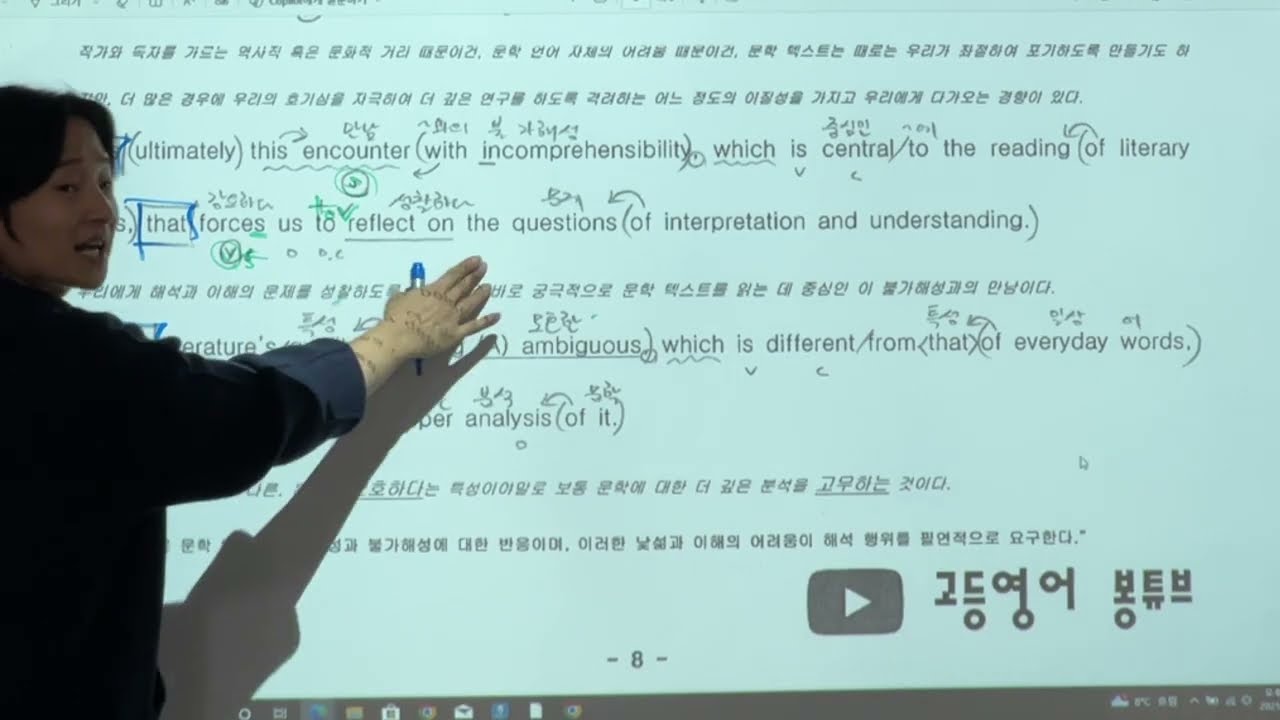 작가와 독자를 가르는 역사적 혹은 문화적 거리 때문이건, 문학 언어 자체의 어려움 때문이건, 문학 텍스트는 때로는 우리가 좌절하여 포기하도록 만들기도 하
더 많은 경우에 우리의 호기심을 자극하여 더 깊은 연구를 하도록 격려하는 어느 정도의 이질성을 가지고 우리에게 다가오는 경향이 있다.
만남 ~와의 불가해성 중심인 ~에
(ultimately) this encounter (with incomprehensibility), which is central/to the reading (of literary
S V C
강요하다 to V 성찰하다 문제
that forces us to reflect on the questions (of interpretation and understanding.)
V 5 O O.C
우리에게 해석과 이해의 문제를 성찰하도 바로 궁극적으로 문학 텍스트를 읽는 데 중심인 이 불가해성과의 만남이다.
특성 모호한 특성 일상 어
erature's (A) ambiguous, which is different/from <that> (of everyday words,)
V C
분석 문학
per analysis (of it.)
O
다른, 호하다는 특성이야말로 보통 문학에 대한 더 깊은 분석을 고무하는 것이다.
문학 성과 불가해성에 대한 반응이며, 이러한 낯섦과 이해의 어려움이 해석 행위를 필연적으로 요구한다."
고등영어 봉튜브
- 8 -
8°C